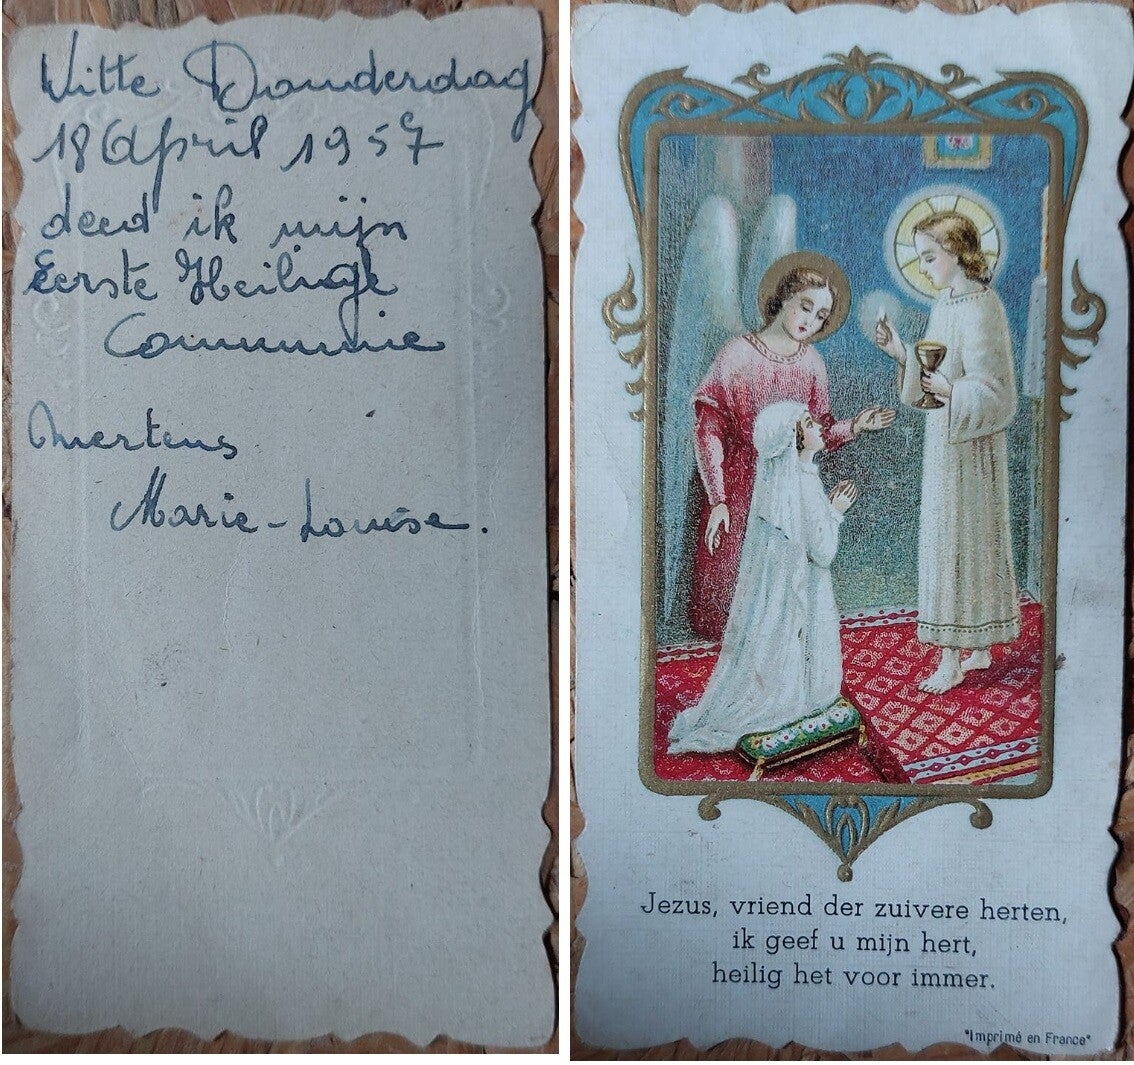 Witte Donderdag
18 April 1957
deed ik mijn
Eerste Heilige
Communie
Mertens
Marie-Louise.
Jezus, vriend der zuivere herten,
ik geef u mijn hert,
heilig het voor immer.
"Imprimé en France"